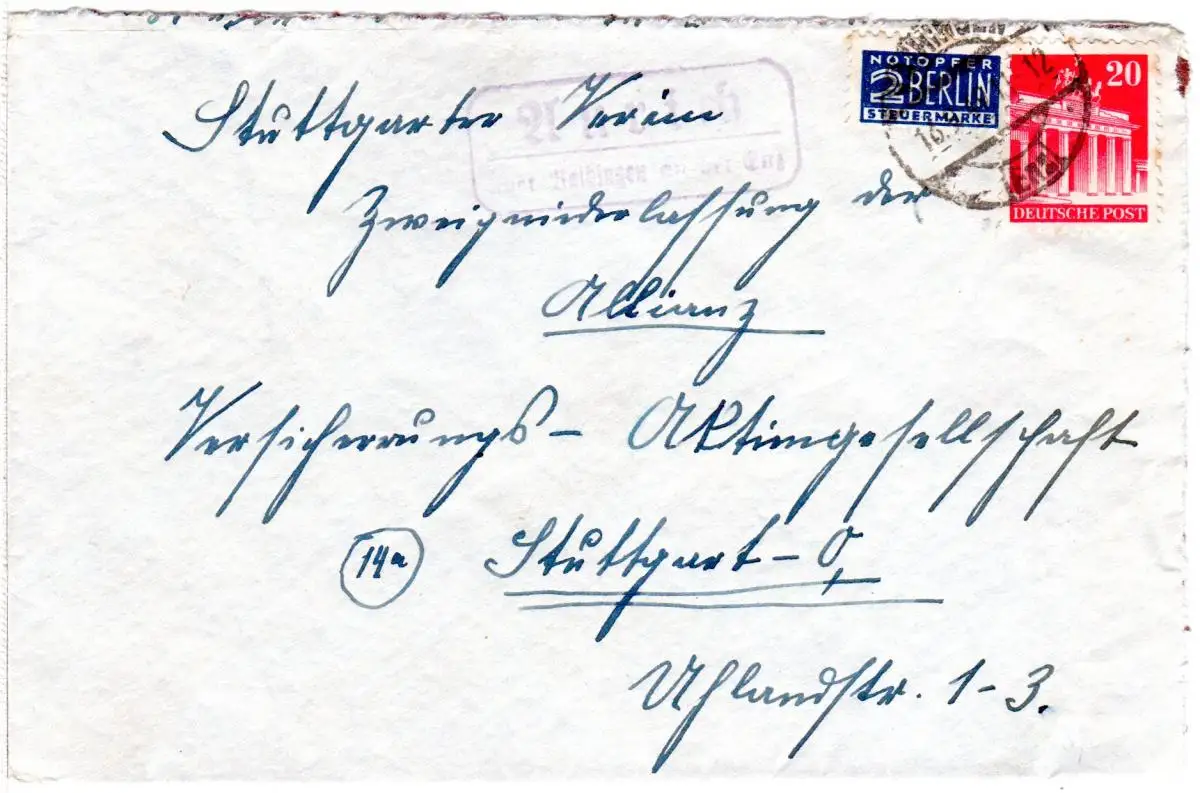 NOTOPFER
2 BERLIN
STEUERMARKE
20
DEUTSCHE POST
12
16.
(Enz)
Aurich
über Vaihingen an der Enz
Stuttgarter Verein
Zweigniederlassung der
Allianz
Versicherungs- Aktiengesellschaft
14a Stuttgart-O,
Uhlandstr. 1-3.